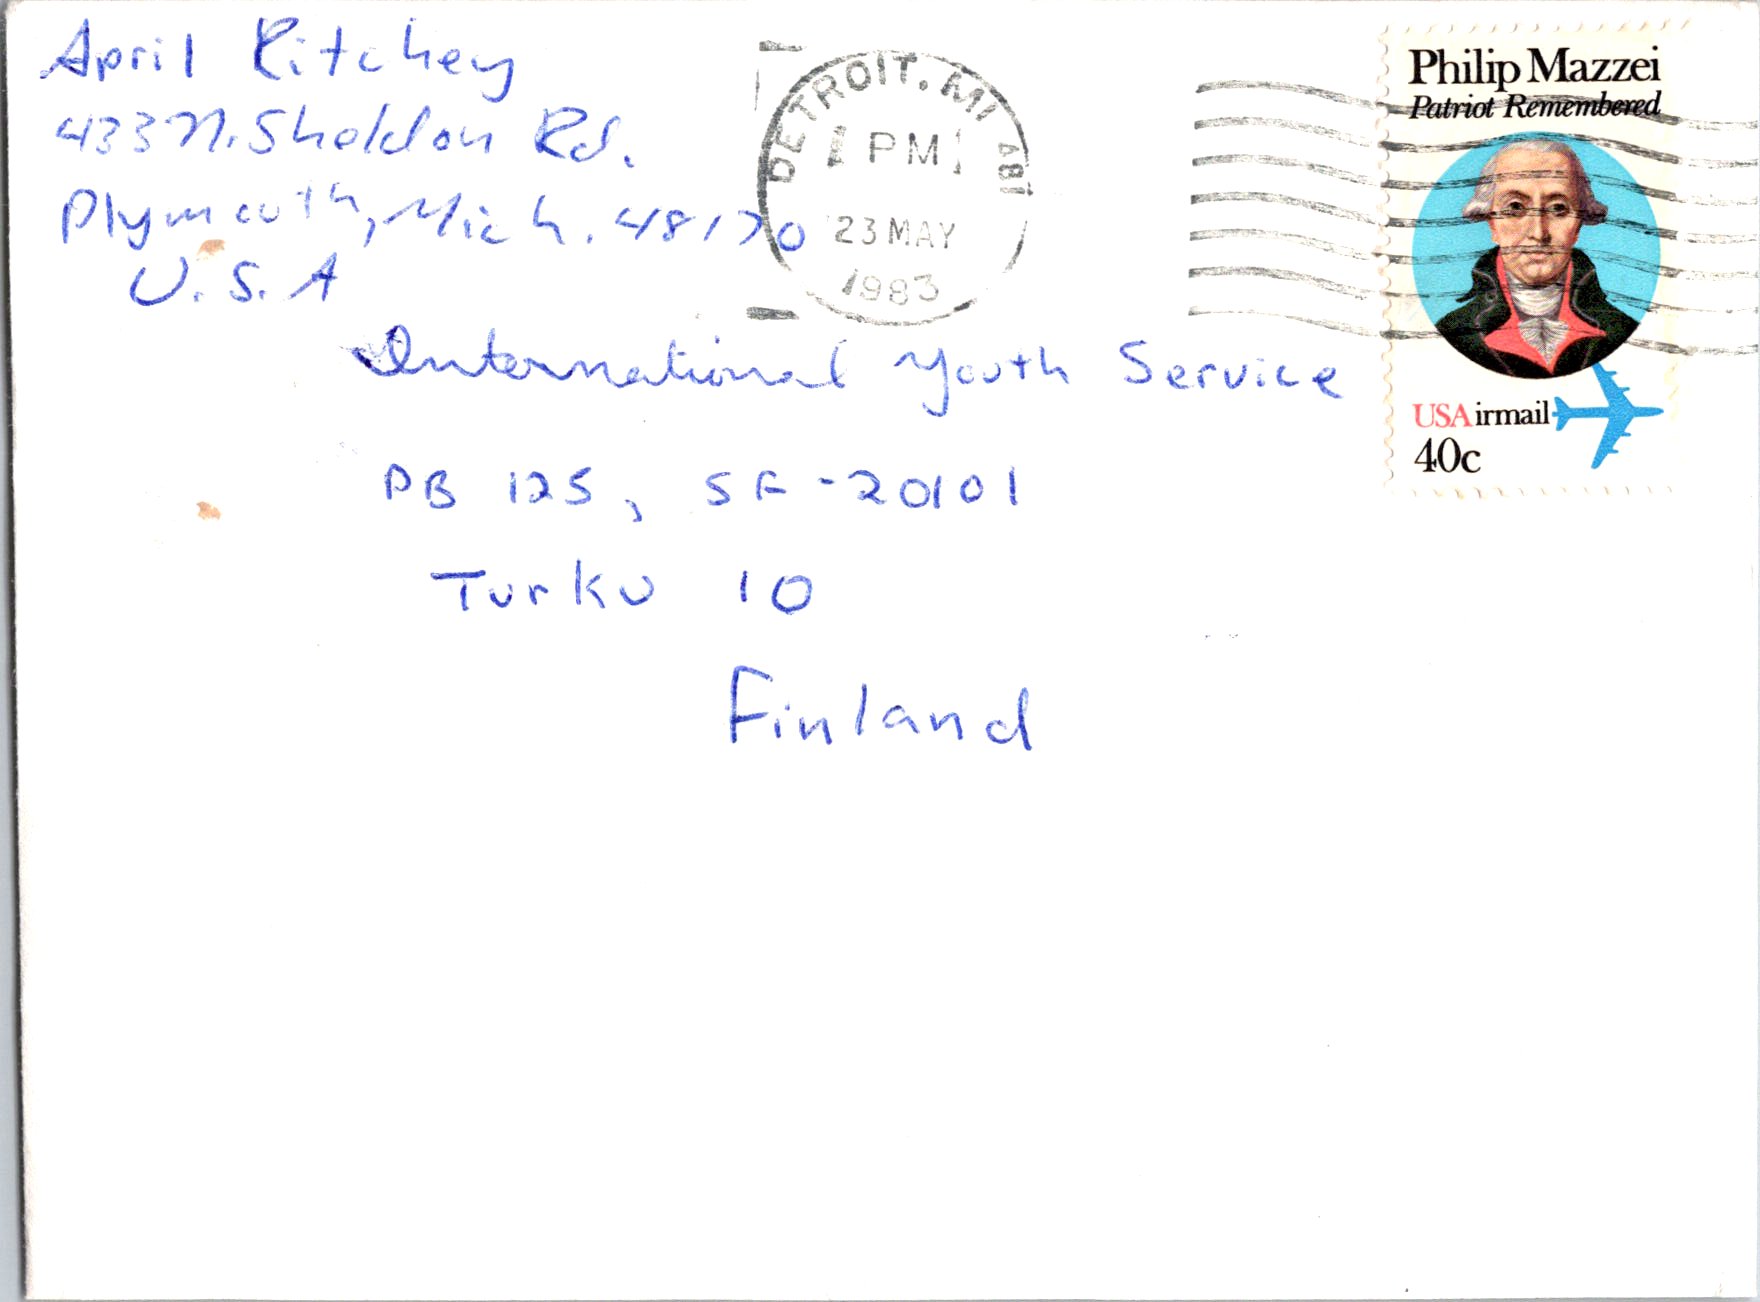 April Ritchey
433 N. Sheldon Rd.
Plymouth, Mich. 48170
U.S.A
DETROIT, MI 481
PM
23 MAY
1983
Philip Mazzei
Patriot Remembered
USAirmail
40c
International Youth Service
PB 125, SF-20101
Turku 10
Finland